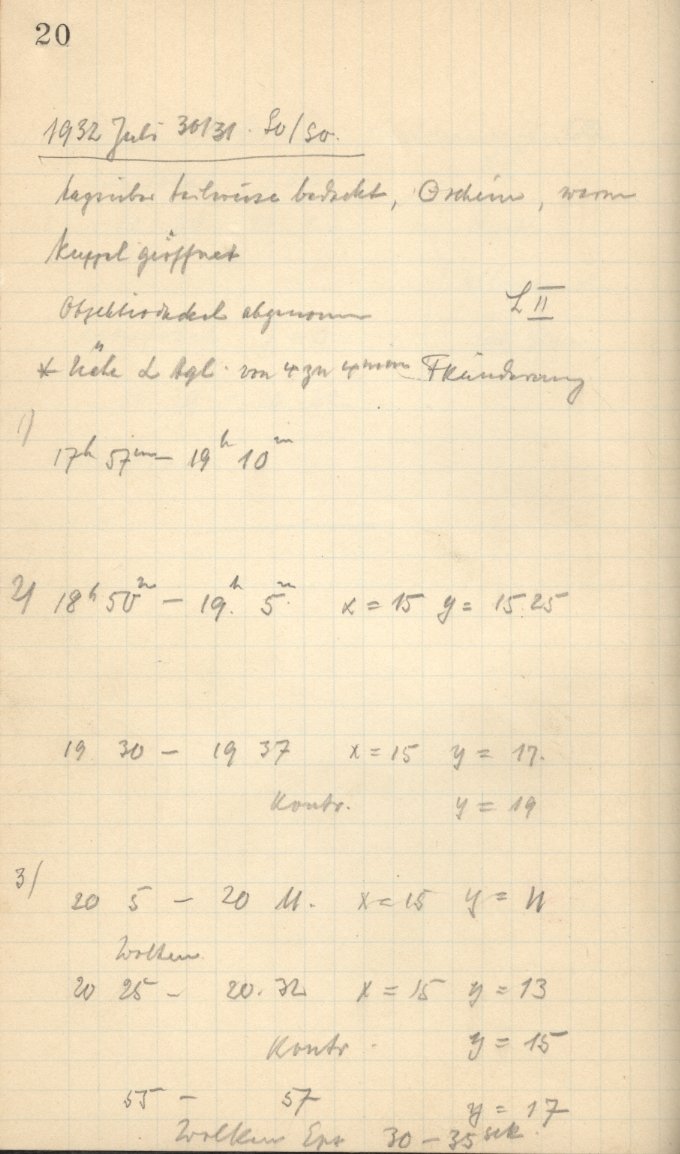 20
1932 Juli 30/31. So/So.
tagsüber teilweise bedeckt, ⊙schein, warm
Kuppel geöffnet
Objektivdeckel abgenommen L II
* Nähe α Aql. von 4 zu 4 mm
1)
17h 57m – 19h 10m
2) 18h 50m – 19h. 5m. x = 15 y = 15.25
19 30 – 19 37 x = 15 y = 17.
Kontr. y = 19
3)
20 5 – 20 11. x = 15 y = 11
Wolken
20 25 – 20. 32 x = 15 y = 13
Kontr. y = 15
55 – 57 y = 17
Wolken Exp 30 – 35 sek.